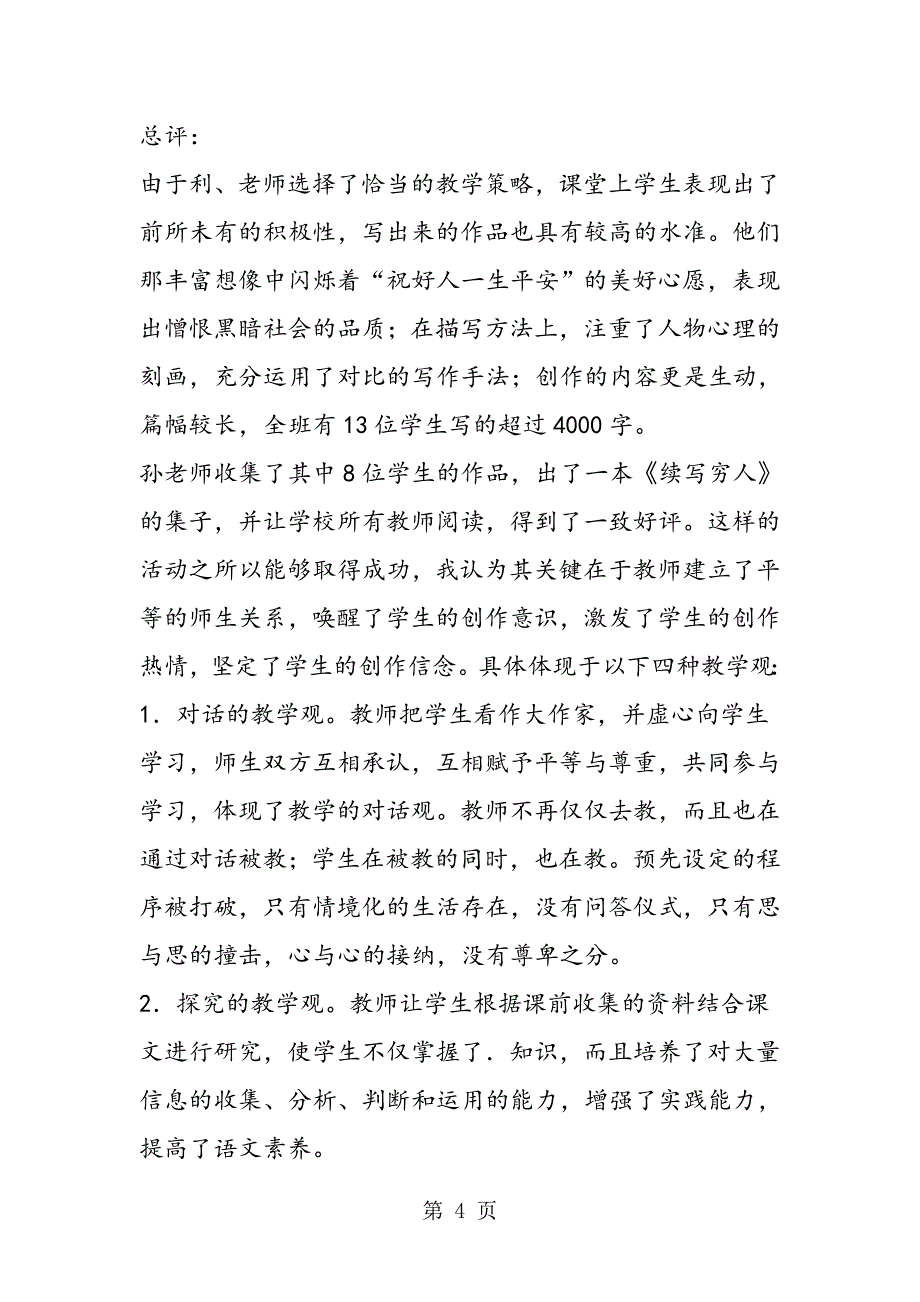 总评：
由于利、老师选择了恰当的教学策略，课堂上学生表现出了
前所未有的积极性，写出来的作品也具有较高的水准。他们
那丰富想像中闪烁着“祝好人一生平安”的美好心愿，表现
出憎恨黑暗社会的品质；在描写方法上，注重了人物心理的
刻画，充分运用了对比的写作手法；创作的内容更是生动，
篇幅较长，全班有 13 位学生写的超过 4000 字。
孙老师收集了其中 8 位学生的作品，出了一本《续写穷人》
的集子，并让学校所有教师阅读，得到了一致好评。这样的
活动之所以能够取得成功，我认为其关键在于教师建立了平
等的师生关系，唤醒了学生的创作意识，激发了学生的创作
热情，坚定了学生的创作信念。具体体现于以下四种教学观：
1．对话的教学观。教师把学生看作大作家，并虚心向学生
学习，师生双方互相承认，互相赋予平等与尊重，共同参与
学习，体现了教学的对话观。教师不再仅仅去教，而且也在
通过对话被教；学生在被教的同时，也在教。预先设定的程
序被打破，只有情境化的生活存在，没有问答仪式，只有思
与思的撞击，心与心的接纳，没有尊卑之分。
2．探究的教学观。教师让学生根据课前收集的资料结合课
文进行研究，使学生不仅掌握了．知识，而且培养了对大量
信息的收集、分析、判断和运用的能力，增强了实践能力，
提高了语文素养。
第 4 页